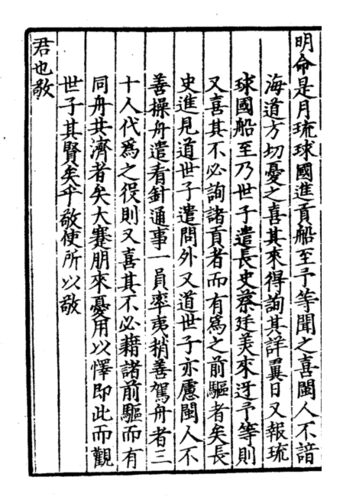 明命是月琉球國進貢船至予等聞之喜閩人不諳
海道方切憂之喜其來得詢其詳翼日又報琉
球國船至乃世子遣長史蔡廷美來迓予等則
又喜其不必詢諸貢者而有為之前驅者矣長
史進見道世子遣問外又道世子亦慮閩人不
善操舟遣看針通事一員率夷稍善駕舟者三
十人代為之役則又喜其不必藉諸前驅而有
同舟共濟者矣大蹇朋來憂用以懌即此而觀
世子其賢矣乎敬使所以敬
君也敬